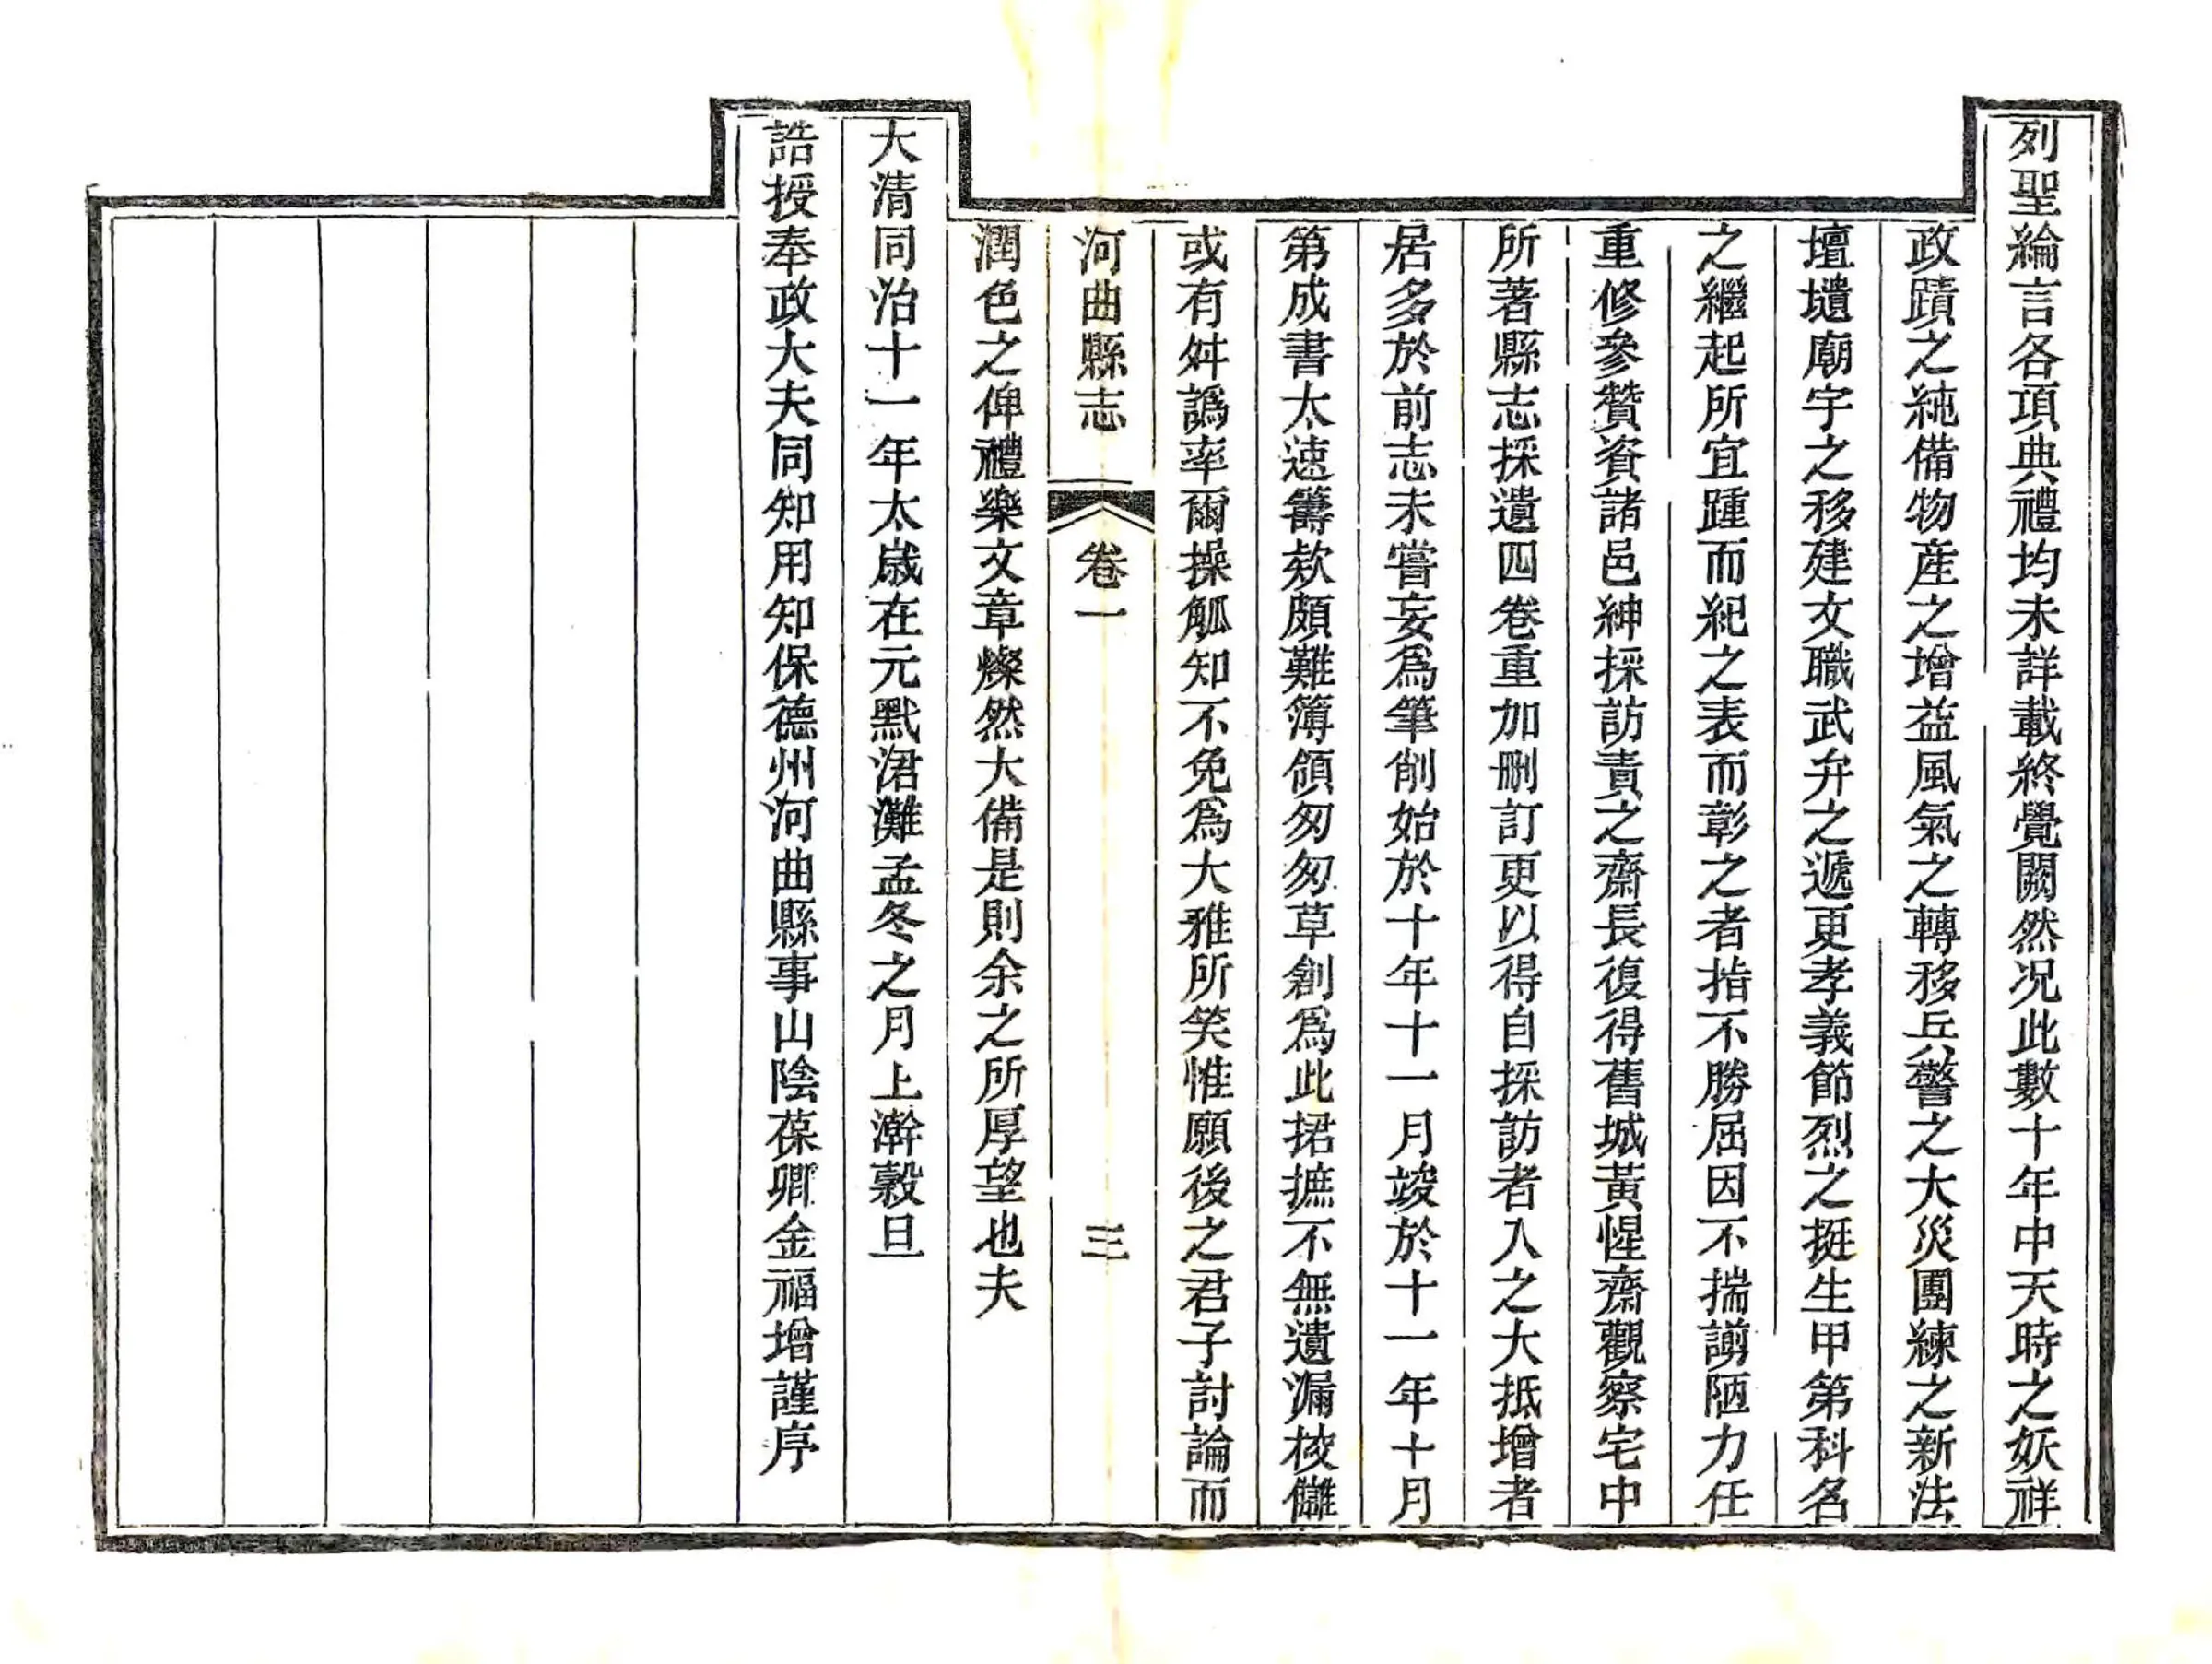 列聖綸言各項典禮均未詳載終覺闕然况此數十年中天時之妖祥
政蹟之純備物産之增益風氣之轉移兵警之大災團練之新法
壇壝廟宇之移建文職武弁之遞更孝義節烈之挺生甲第科名
之繼起所宜踵而紀之表而彰之者指不勝屈因不揣謭陋力任
重修參贊資諸邑紳採訪責之齋長復得舊城黃惺齋觀察宅中
所著縣志採遺四卷重加刪訂更以得自採訪者入之大抵增者
居多於前志未嘗妄爲筆削始於十年十一月竣於十一年十月
第成書太速籌欸頗難簿領匆匆草創爲此捃摭不無遺漏校讎
或有舛譌率爾操觚知不免爲大雅所笑惟願後之君子討論而
河曲縣志 卷一 三
潤色之俾禮樂文章燦然大備是則余之所厚望也夫
大清同治十一年太歲在元黓涒灘孟冬之月上澣穀旦
誥授奉政大夫同知用知保德州河曲縣事山陰葆卿金福增謹序